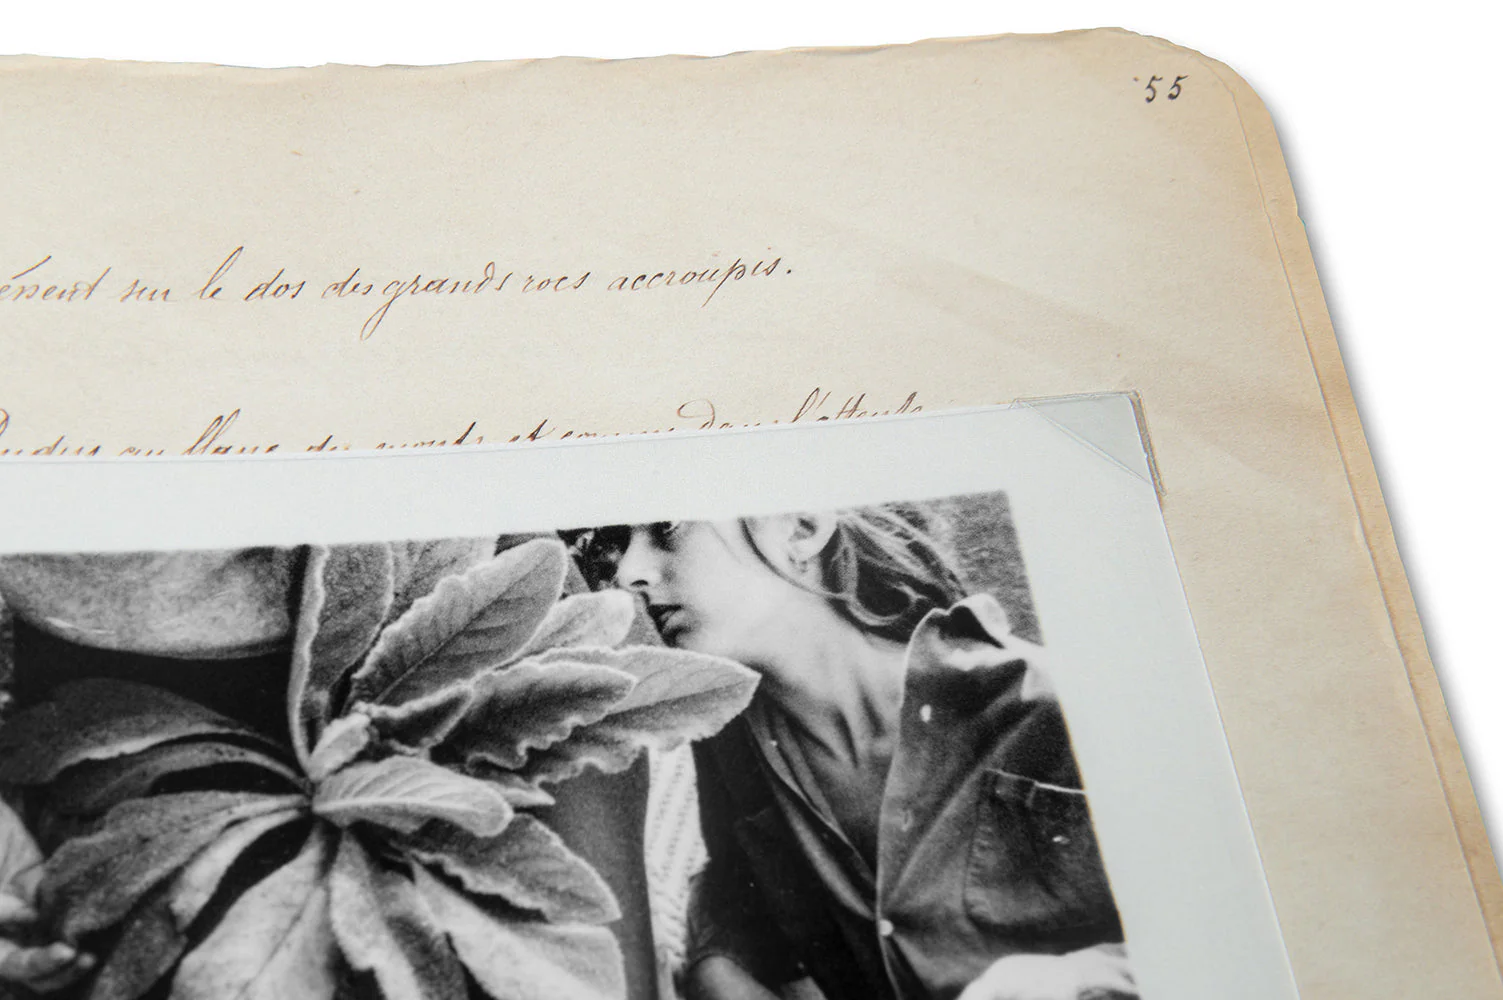 55
sur le dos des grands rocs accroupis.
au flanc des monts et comme dans l'attente